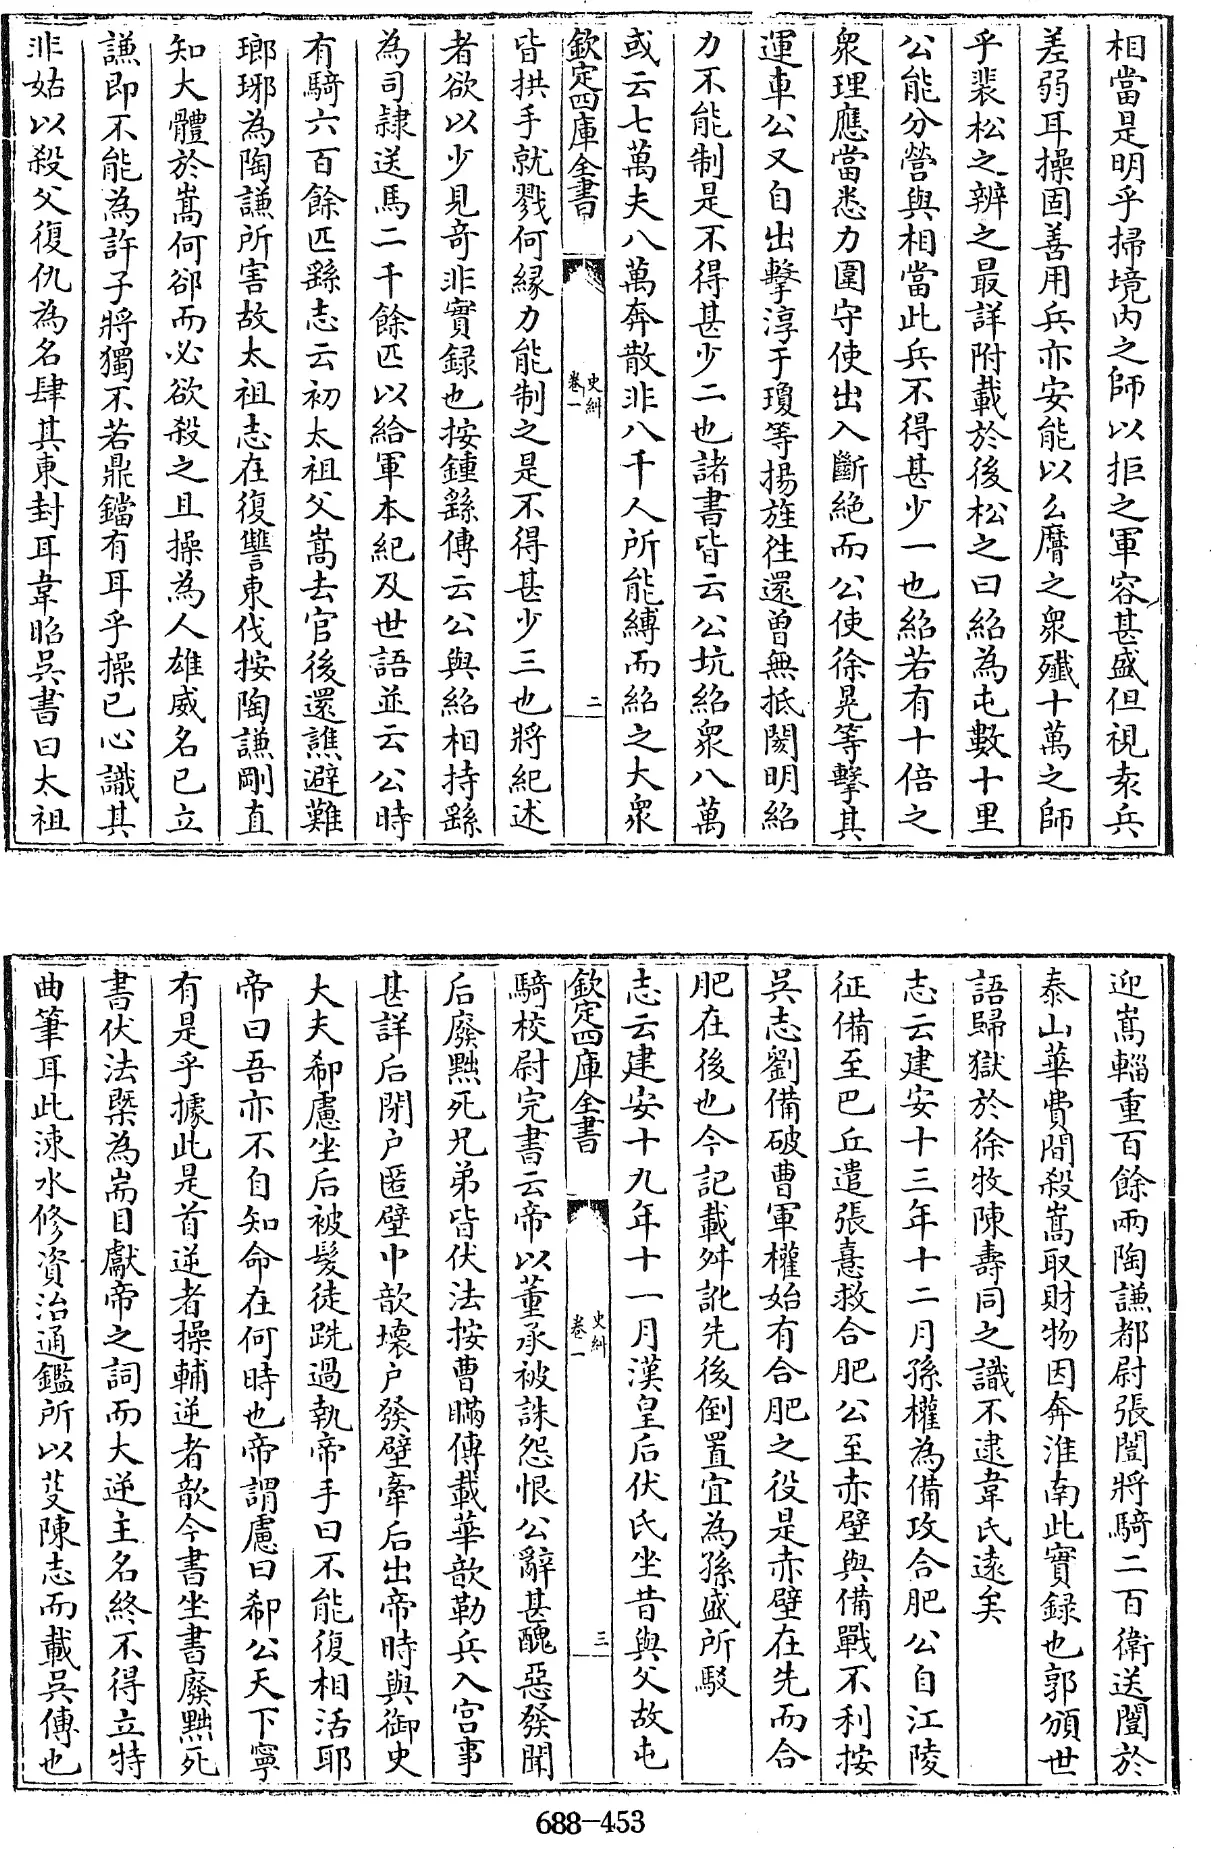 相當是明乎掃境內之師以拒之軍容甚盛但視袁兵
差弱耳操固善用兵亦安能以么麿之衆殲十萬之師
乎裴松之辨之最詳附載於後松之曰紹為屯數十里
公能分營與相當此兵不得甚少一也紹若有十倍之
衆理應當悉力圍守使出入斷絕而公使徐晃等擊其
運車公又自出擊淳于瓊等揚旌徃還曽無抵閡明紹
力不能制是不得甚少二也諸書皆云公坑紹衆八萬
或云七萬夫八萬奔散非八千人所能縛而紹之大衆
欽定四庫全書
史糾
卷一
二
皆拱手就戮何縁力能制之是不得甚少三也將紀述
者欲以少見竒非實録也按鍾繇傳云公與紹相持繇
為司隸送馬二千餘匹以給軍本紀及世語並云公時
有騎六百餘匹繇志云初太祖父嵩去官後還譙避難
瑯琊為陶謙所害故太祖志在復讐東伐按陶謙剛直
知大體於嵩何郤而必欲殺之且操為人雄威名已立
謙即不能為許子將獨不若鼎鐺有耳乎操已心識其
非姑以殺父復仇為名肆其東封耳韋昭吳書曰太祖
迎嵩輜重百餘兩陶謙都尉張闓將騎二百衛送闓於
泰山華費間殺嵩取財物因奔淮南此實録也郭頒世
語歸獄於徐牧陳壽同之識不逮韋氏遠矣
志云建安十三年十二月孫權為備攻合肥公自江陵
征備至巴丘遣張憙救合肥公至赤壁與備戰不利按
吳志劉備破曹軍權始有合肥之役是赤壁在先而合
肥在後也今記載舛訛先後倒置宜為孫盛所駁
志云建安十九年十一月漢皇后伏氏坐昔與父故屯
欽定四庫全書
史糾
卷一
三
騎校尉完書云帝以董承被誅怨恨公辭甚醜惡發聞
后廢黜死兄弟皆伏法按曹瞞傳載華歆勒兵入宫事
甚詳后閉户匿壁中歆壊户發壁牽后出帝時與御史
大夫郗慮坐后被髮徒跣過執帝手曰不能復相活耶
帝曰吾亦不自知命在何時也帝謂慮曰郗公天下寧
有是乎據此是首逆者操輔逆者歆今書坐書廢黜死
書伏法槩為耑目獻帝之詞而大逆主名終不得立特
曲筆耳此涑水修資治通鑑所以芟陳志而載吳傳也
688-453